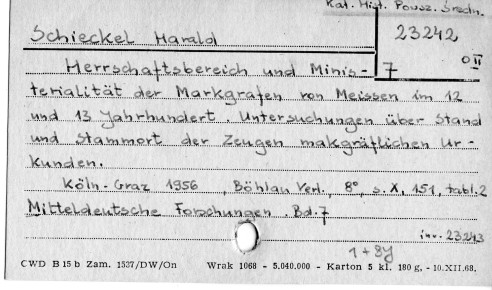 Kat. Hist. Powsz. Średn.
Schieckel Harald
23242
0 II
Herrschaftsbereich und Minis-
7
terialität der Markgrafen von Meissen im 12
und 13 Jahrhundert. Untersuchungen über Stand
und Stammort der Zeugen makgräflichen Ur-
kunden.
Köln-Graz 1956, Böhlau Verl., 8°, s. X, 151, tabl. 2
Mitteldeutsche Forschungen. Bd. 7
inw. 23243
1 + 8y
CWD B 15 b Zam. 1537/DW/On Wrak 1068 - 5.040.000 - Karton 5 kl. 180 g, - 10.XII.68.